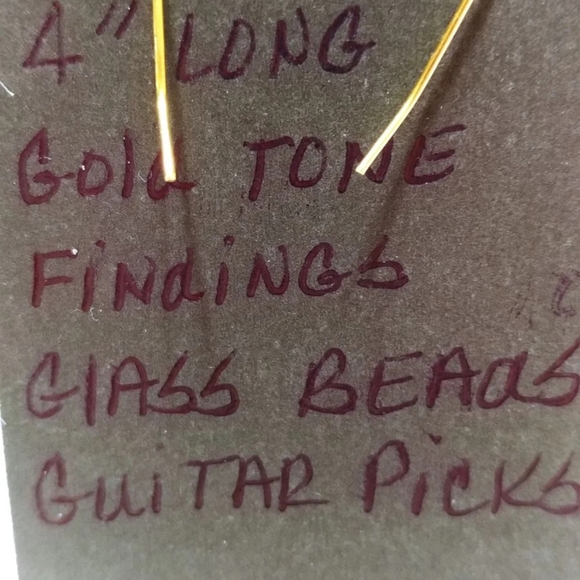 4" LONG
Gold TONE
FiNdiNGS
GlASS BEAdS
GuiTAR PicKS